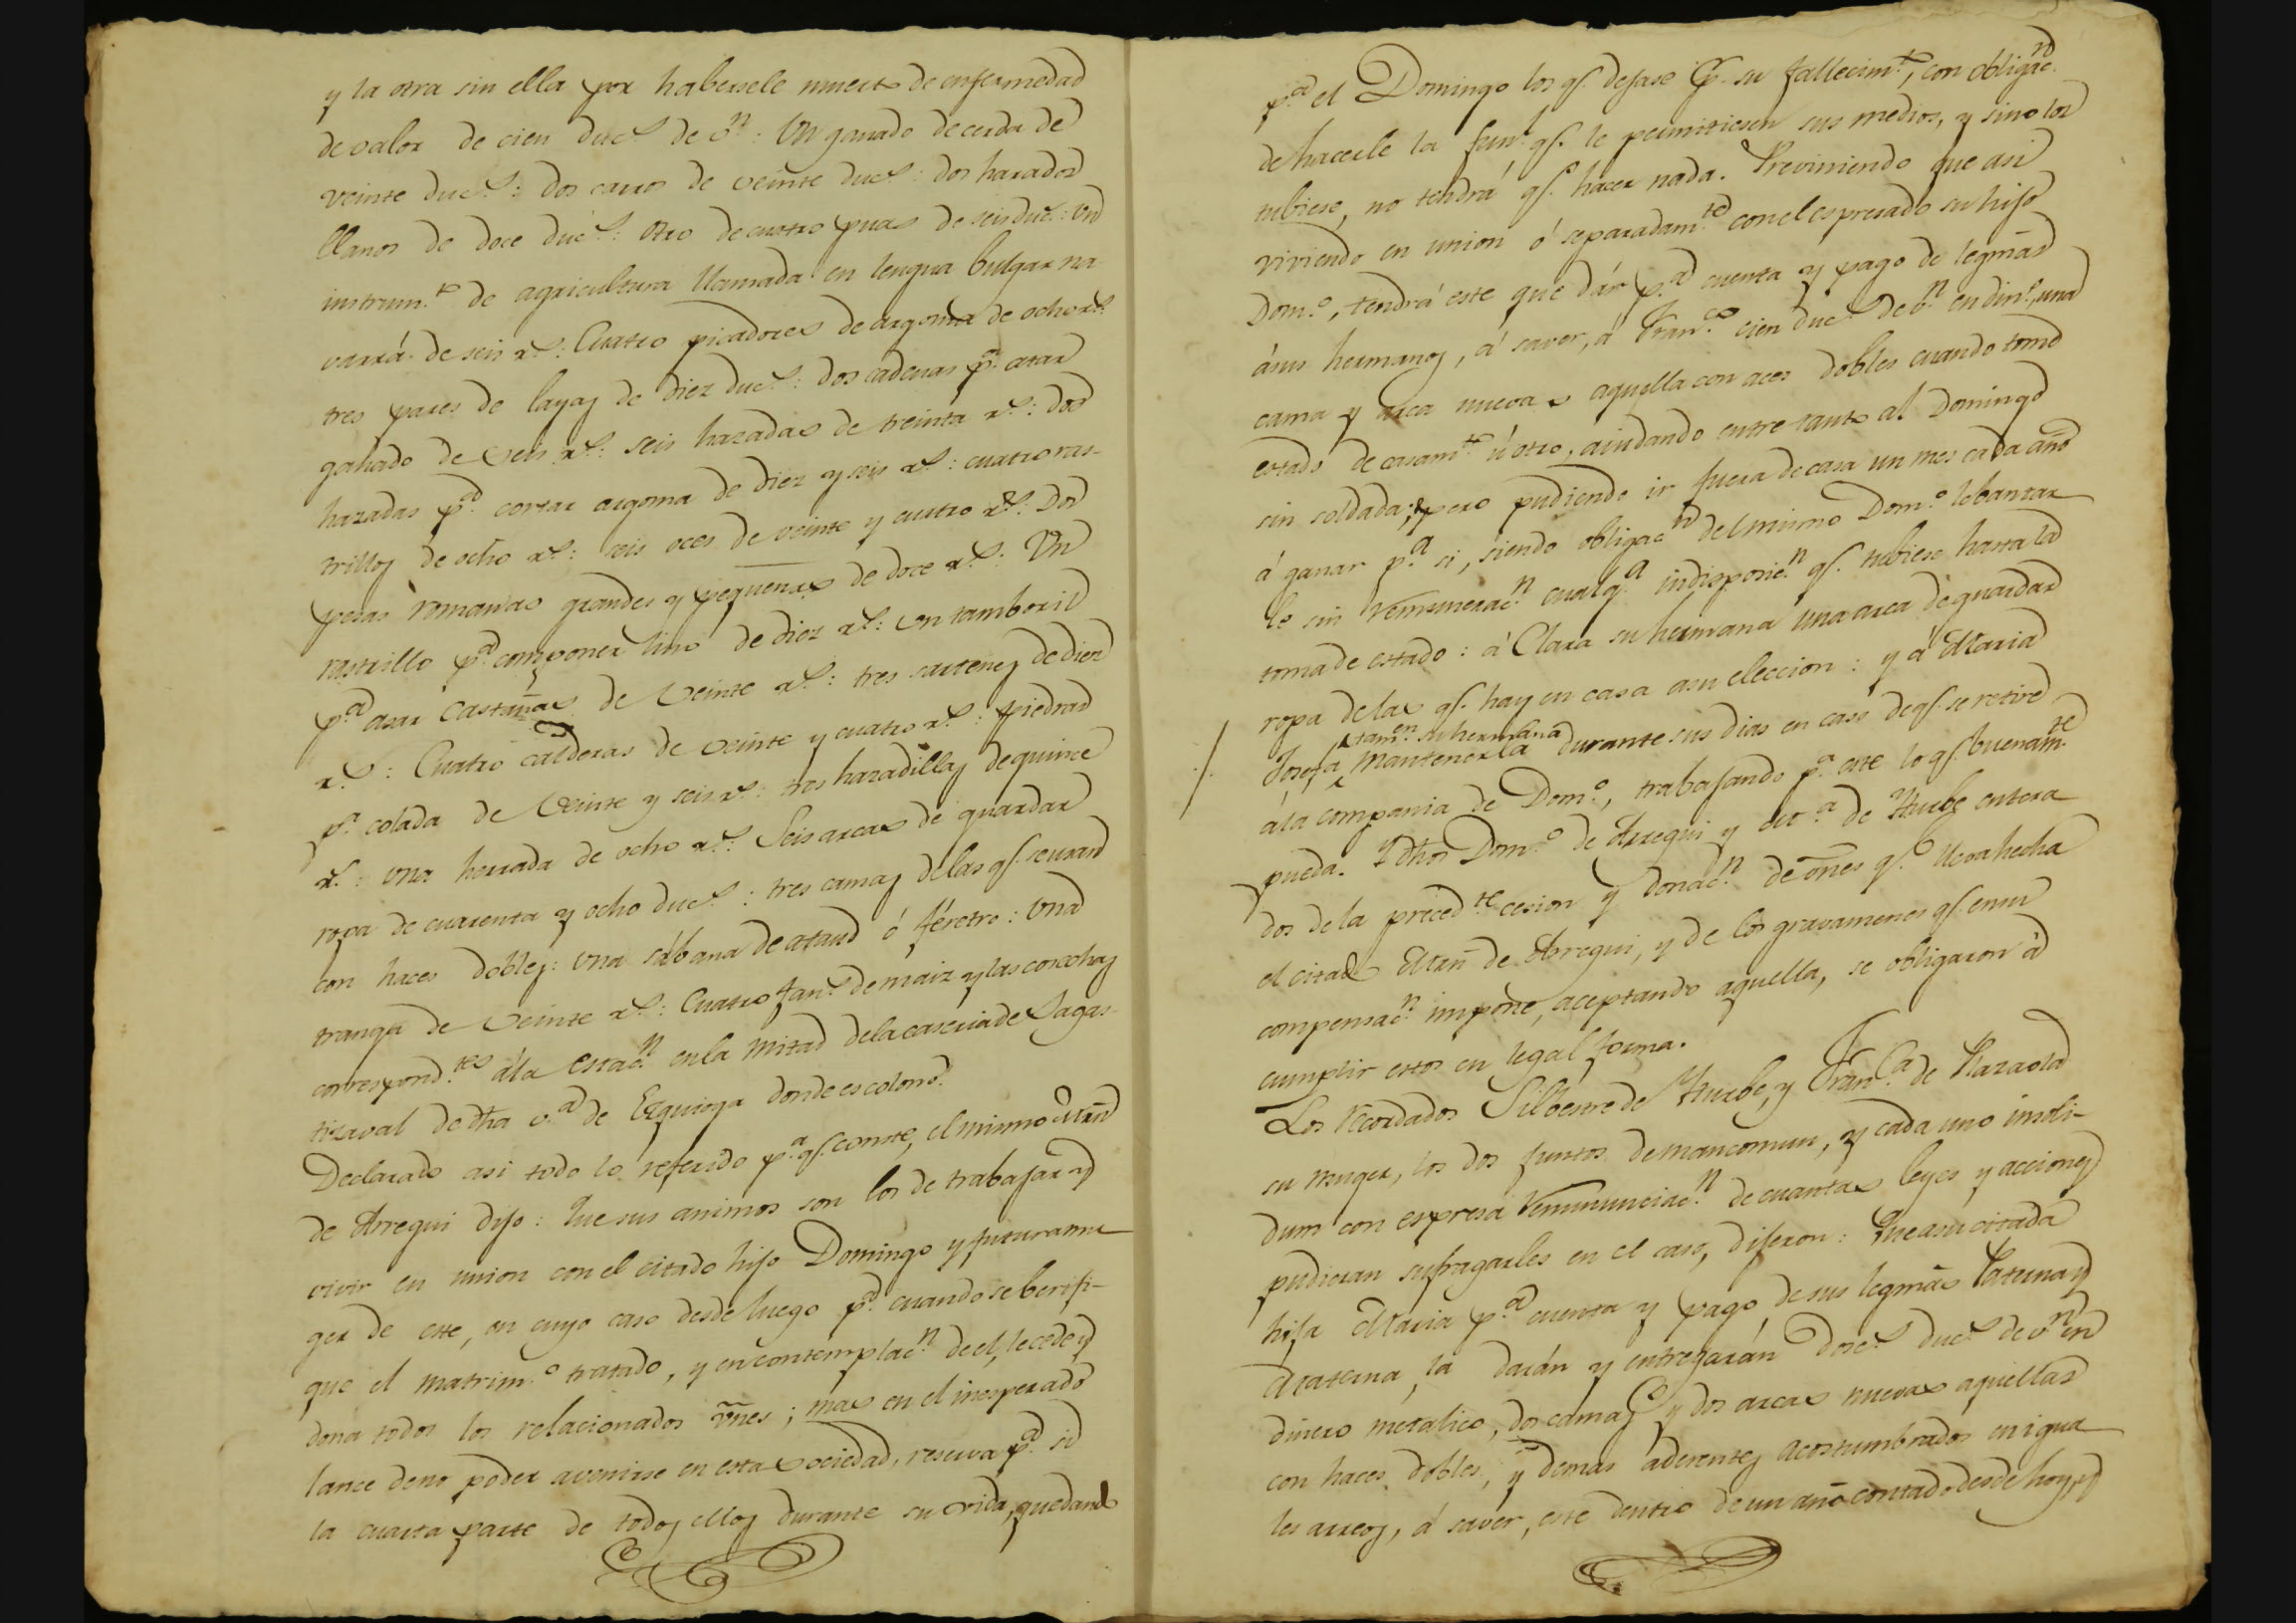 y la otra sin ella por habersele muerto de enfermedad
de valor de cien duc.s de v.n: Un ganado de cerda de
veinte duc.s: dos carros de veinte duc.s: dos harados
llanos de doce duc.s: otro de cuatro puas de seis duc.s: un
instrum.to de agricultura llamada en lengua bulgar na-
varrá de seis r.s: Cuatro picadores de argoma de ocho r.s:
tres pares de layas de diez duc.s: dos cadenas p.a atar
ganado de seis r.s: seis hazadas de treinta r.s: dos
hazadas p.a cortar argoma de diez y seis r.s: cuatro ras-
trillos de ocho r.s: seis oces de veinte y cuatro r.s: Dos
pesas romanas grandes y pequeñas de doce r.s: Un
rastrillo p.a componer lino de diez r.s: un tamboril
p.a asar castañas de veinte r.s: tres sartenes de diez
r.s: Cuatro calderas de veinte y cuatro r.s: piedra
p.a colada de veinte y seis r.s: tres hazadillas de quince
r.s: una herrada de ocho r.s: Seis arcas de guardar
ropa de cuarenta y ocho duc.s: tres camas de las q.e se usan
con haces dobles: una sábana de ataud ó féretro: una
tranga de veinte r.s: Cuatro fan.s de maiz y las cosechas
correspond.tes á la estac.n en la mitad de la caseria de Sagas-
tizaval de dha v.a de Ezquioga donde es colono.
Declarado asi todo lo referido p.a q.e conste, el mismo Mrn
de Arregui dijo: Que sus animos son los de trabajar y
vivir en union con el citado hijo Domingo y futura mu-
ger de este, en cuyo caso desde luego p.a cuando se berifi-
que el matrim.o tratado, y en contemplac.n de el, le cede y
dona todos los relacionados vnes; mas en el inesperado
lance de no poder avenirse en esta sociedad, reserva p.a si
la cuarta parte de todos ellos durante su vida, quedand
p.a el Domingo los q.e dejase p.r su fallecim.to, con obligac.n
de hacerle la fun.n q.e le permitiesen sus medios, y si no los
tubiese, no tendrá q.e hacer nada. Previniendo que asi
viviendo en union ó separadam.te con el espresado su hijo
Dom.o, tendrá este que dár p.a cuenta y pago de legmas
á sus hermanos, á saver, á Fran.co cien duc.s de v.n en din.o, una
cama y arca nuevas aquella con aces dobles cuando tome
estado de casam.to ú otro, aiudando entre tanto al Domingo
sin soldada; pero pudiendo ir fuera de casa un mes cada año
á ganar p.a si, siendo obligac.n del mismo Dom.o lebantar
le sin remunerac.n cualq.a indisposic.n q.e tubiese hasta la
toma de estado: á Clara su hermana una arca de guardar
ropa de las q.e hay en casa a su eleccion: y á Maria
tam.en su hermana
Josefa mantenerla durante sus dias en caso de q.e se retire
á la compania de Dom.o, trabajando p.a este lo q.e buenam.te
pueda. Y dhos Dom.o de Arregui y de Yturbe entera
dos de la preced.te cesion y donac.n de vnes q.e lleva hecha
el citado Mrn de Arregui, y de los gravamenes q.e en su
compensac.n impone, aceptando aquella, se obligaron á
cumplir estos en legal forma.
Los recordados Silbestre de Yturbe, y Fran.ca de Plazaola
su muger, los dos juntos de mancomun, y cada uno insoli-
dum con espresa renunciac.n de cuantas leyes y acciones
pudieran sufragarles en el caso, dijeron: Que a su citada
hija Maria p.a cuenta y pago de sus legmas Paterna y
Materna, la darán y entregarán duc.s de v.n en
dinero metalico, dos camas y dos arcas nuevas aquellas
con haces dobles, y demas aderentes acostumbrados en igua
les arreos, á saver, este dentro de un año contado desde hoy, y